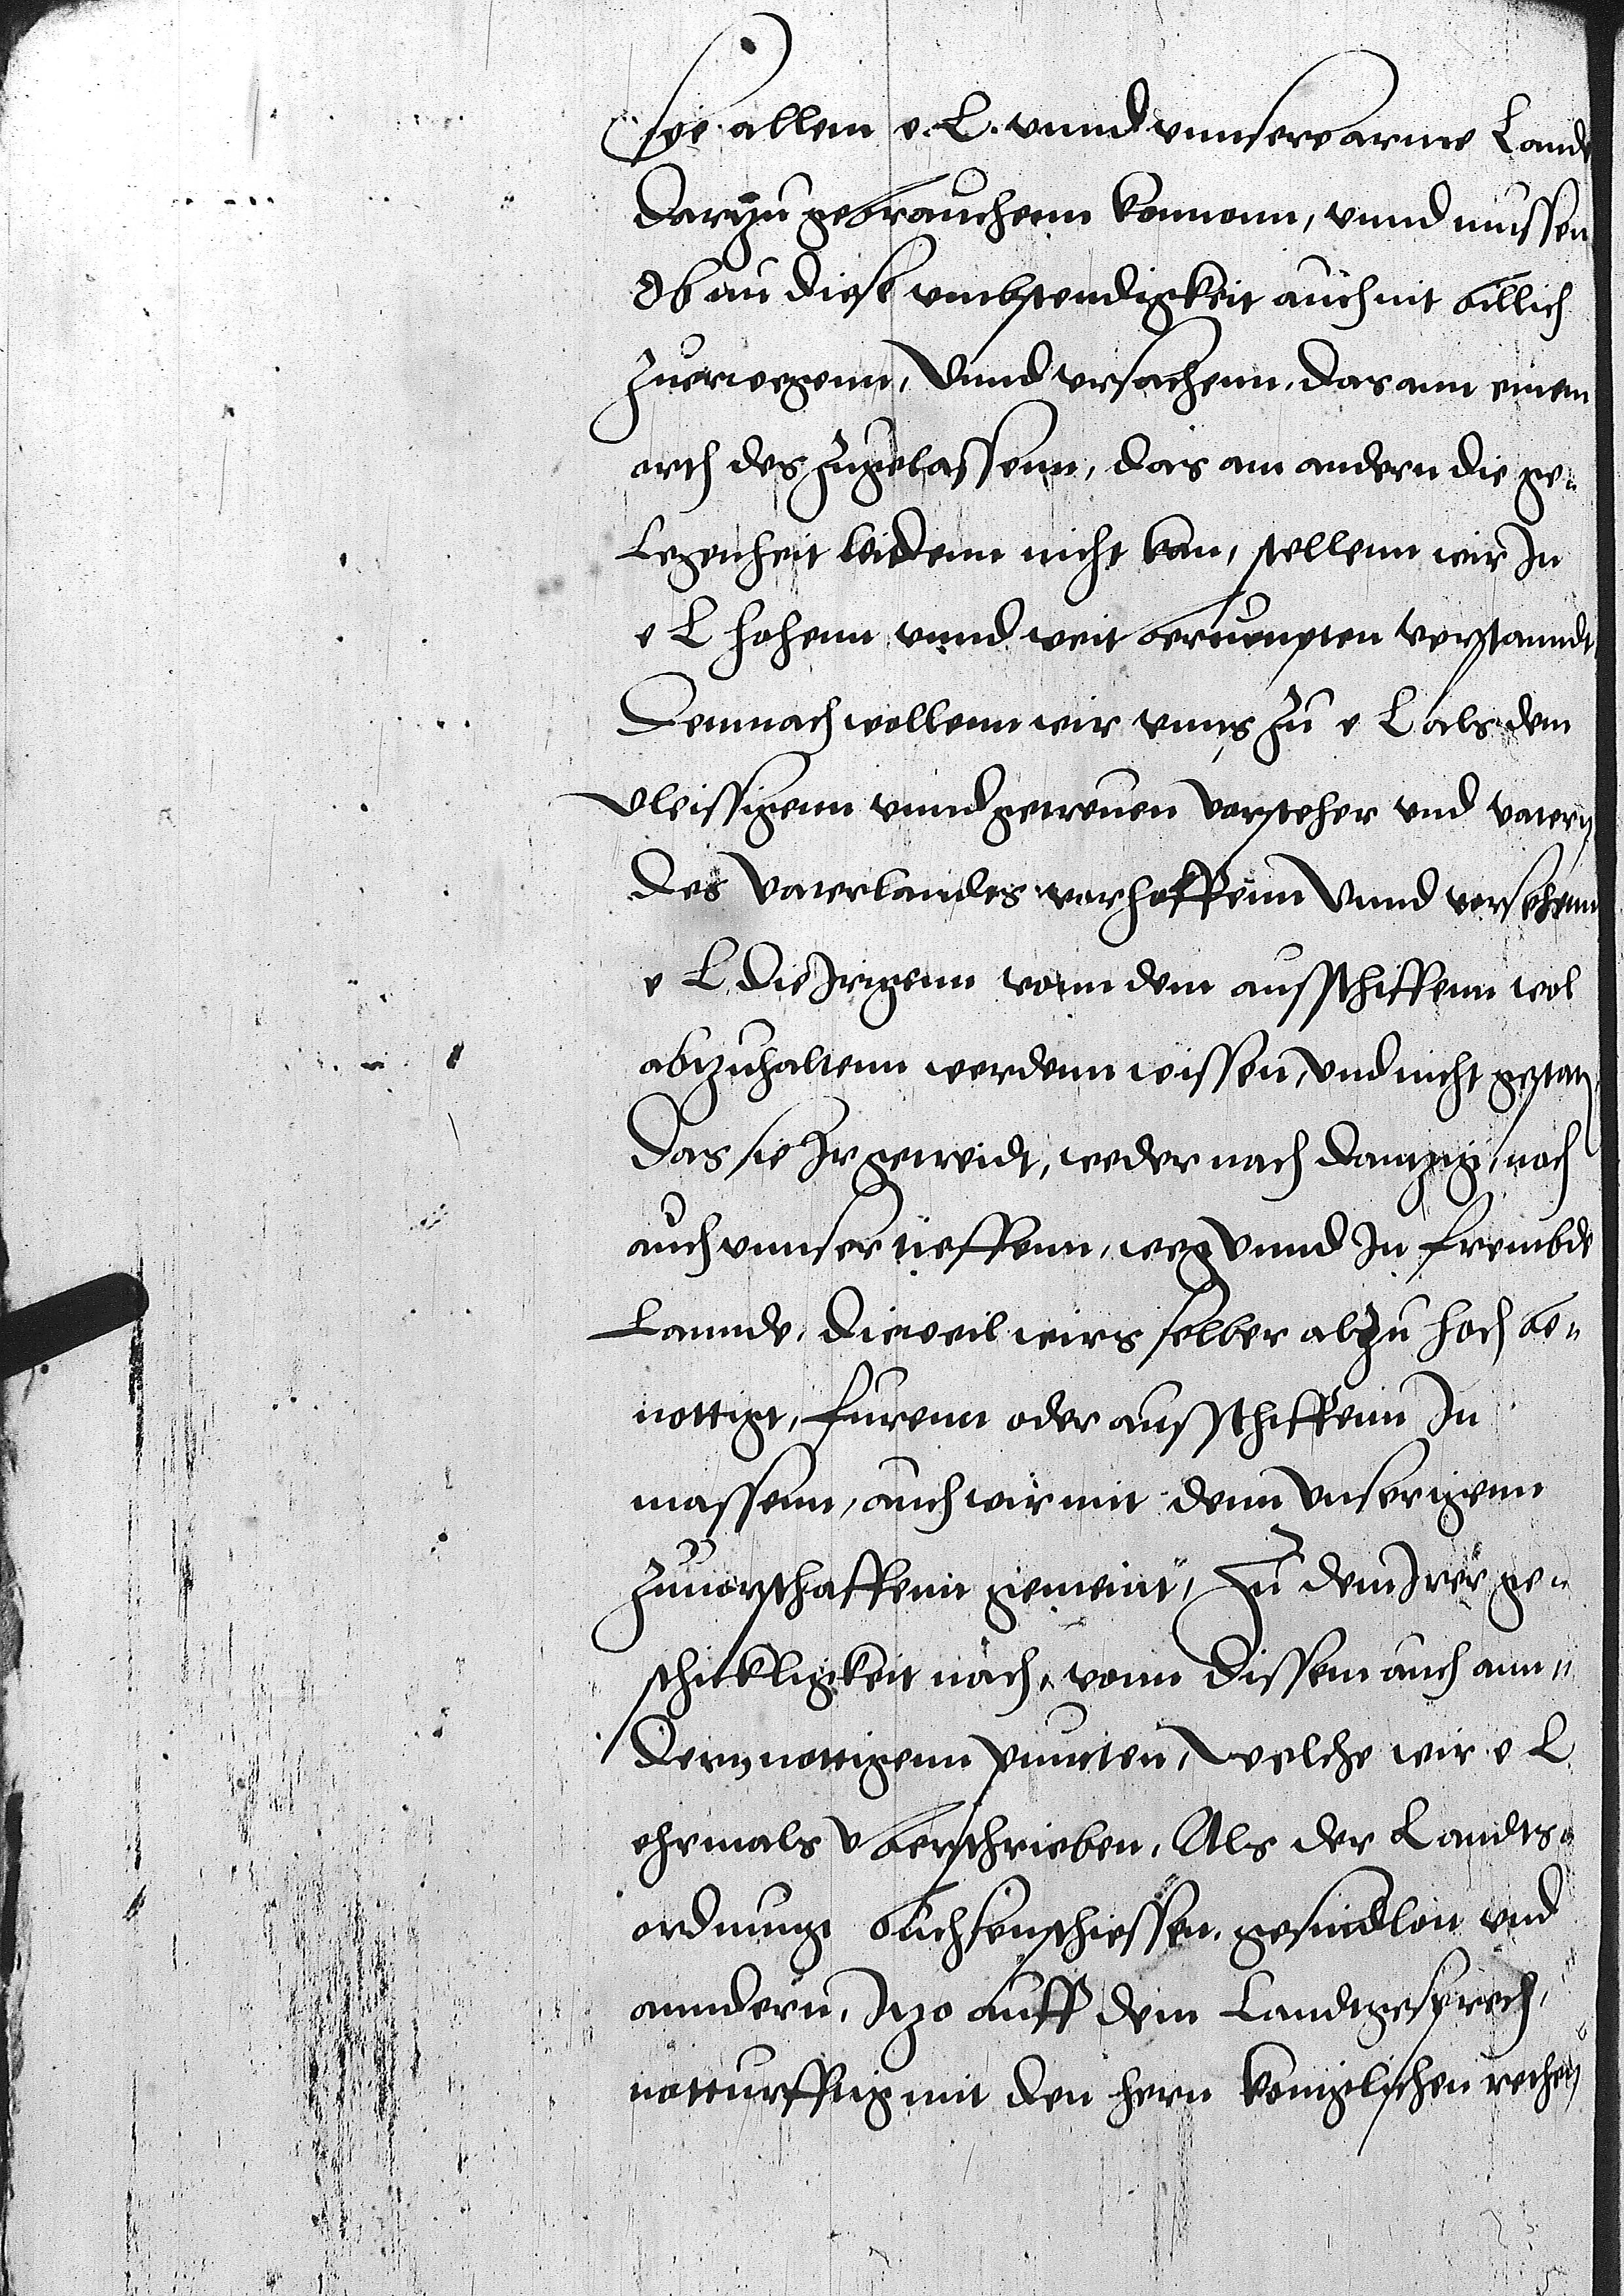 sye allein e. L. vnnd vnnsere arme Lande
Dartzu gebrauchenn konnenn, vnnd mussen
Ob nu diese vmbstendigkeit auch nit billich
Zuerwegenn, Vnnd vrsachenn, das ann einem
orth des Zugelassenn, das am andern die ge-
Legenheit leidenn nicht kan, stellenn wir In
e L hohenn vnnd weit berumpten verstanndt
Demnach wollenn wir vnns Zu e L als dem
Vleissigenn vnnd getreuen vorsteher vnd vatern
des Vaterlandes vorhoffenn Vnnd versehenn
e L die Irigenn vonn dem ausschiffenn wol
abtzuhaltenn werdenn wissen, vnd nicht gestaten
Das sie Ir getreidt, weder nach dantzig, noch
auch vnnser tieffenn, weg Vnnd In frembde
Lannde, dieweil wirs selber altzu hoch be-
nottigt, furenn oder ausschiffenn In
massenn, auch wir mit denn vnserigenn
Zuuorschaffenn gemeint, Zu dem Irer ge-
schickligkeit nach, vonn dissem auch ann-
dern nottigenn puncten, welche wir e L
ehrmals vberschrieben, Als der Landts-
ordnunge buchsenschiessen, gesindlon vnd
anndern, Itzo auff dem Landtgesprech,
notturfftig mit den hern koniglichen rethen